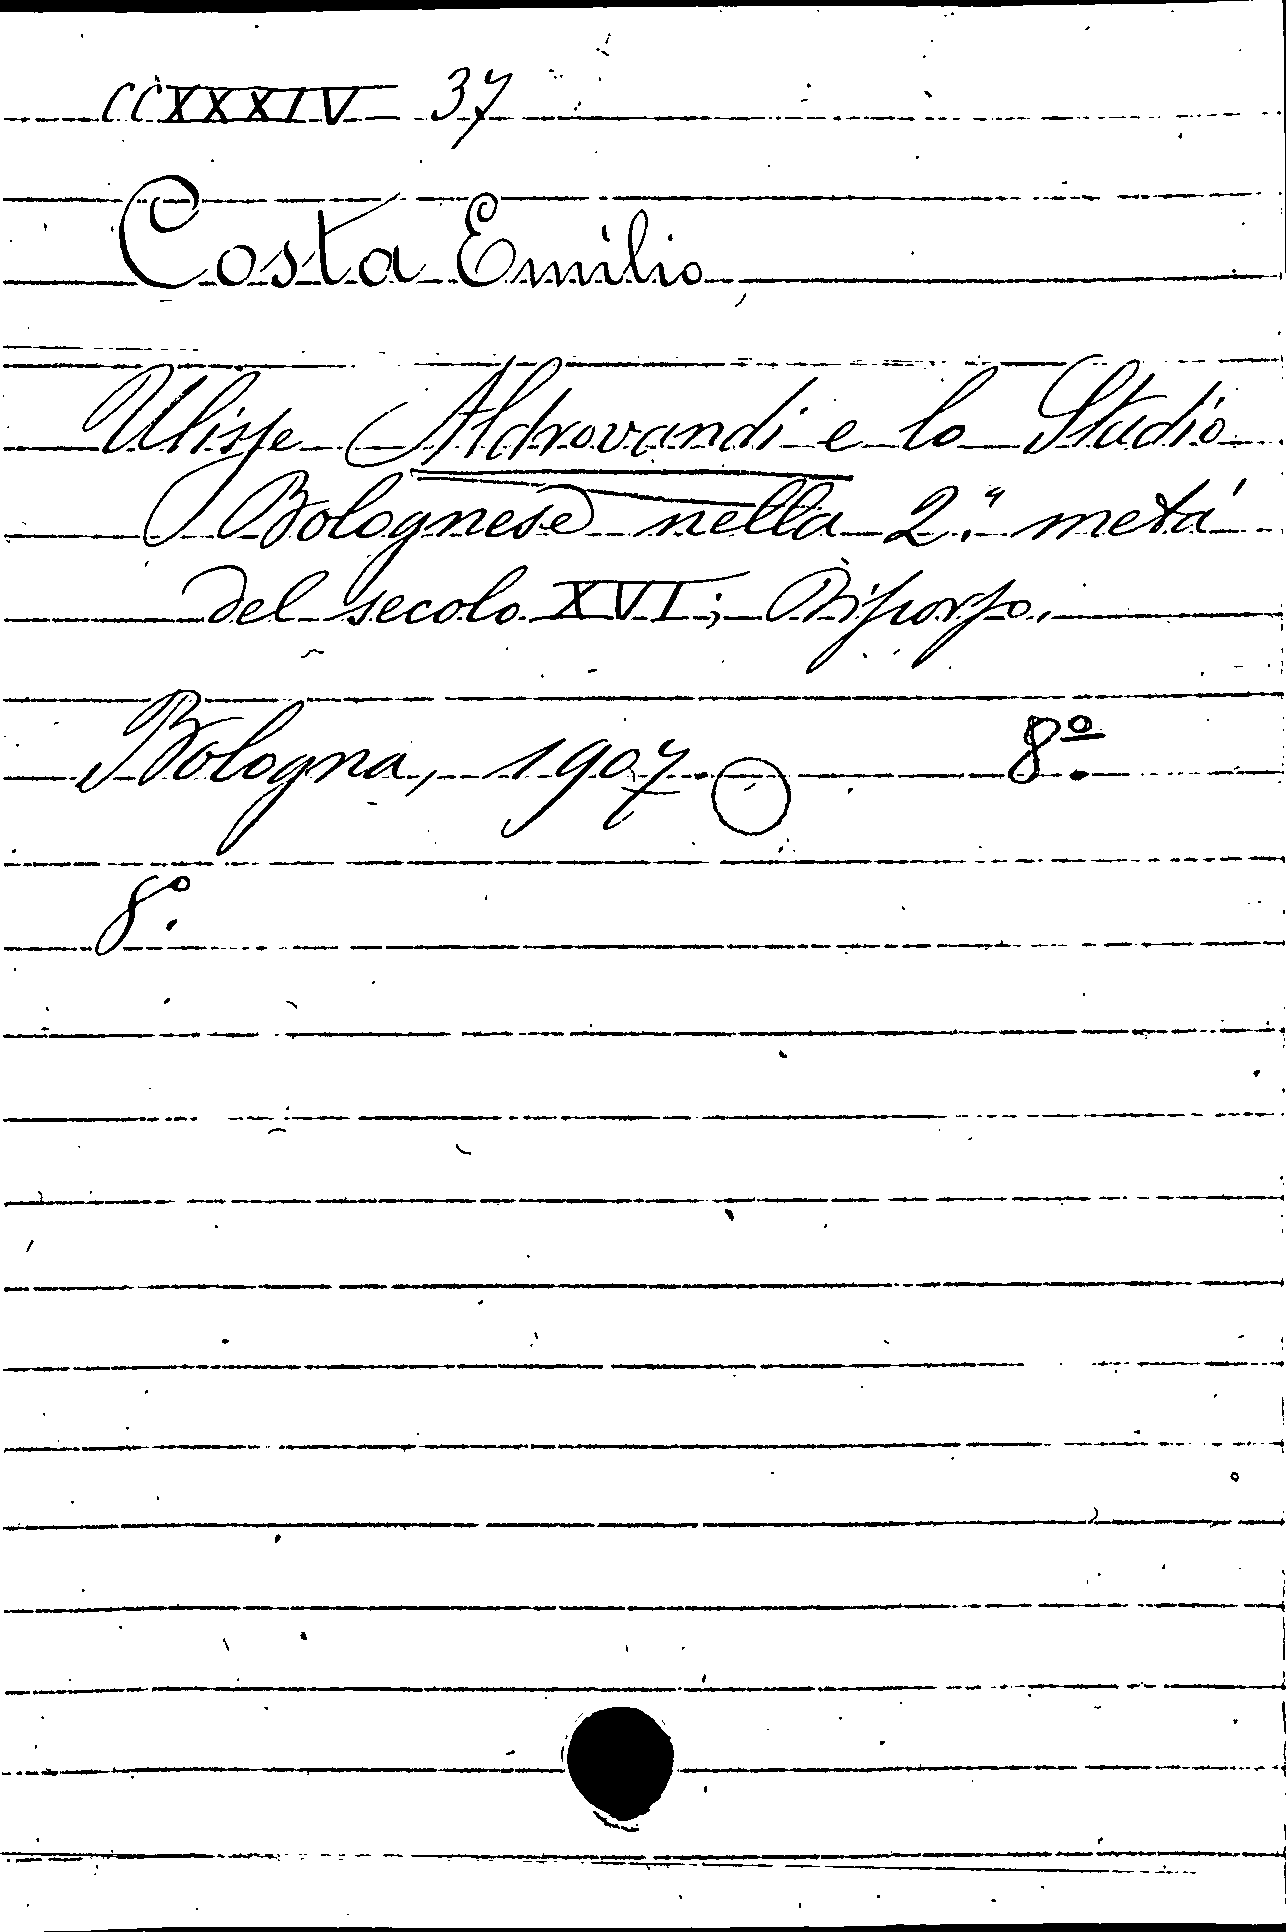 CCXXXIV 37
Costa Emilio
Ulisse Aldrovandi e lo Studio
Bolognese nella 2.a metá
del secolo XVI; Discorso.
Bologna, 1907. 8o.
8o.